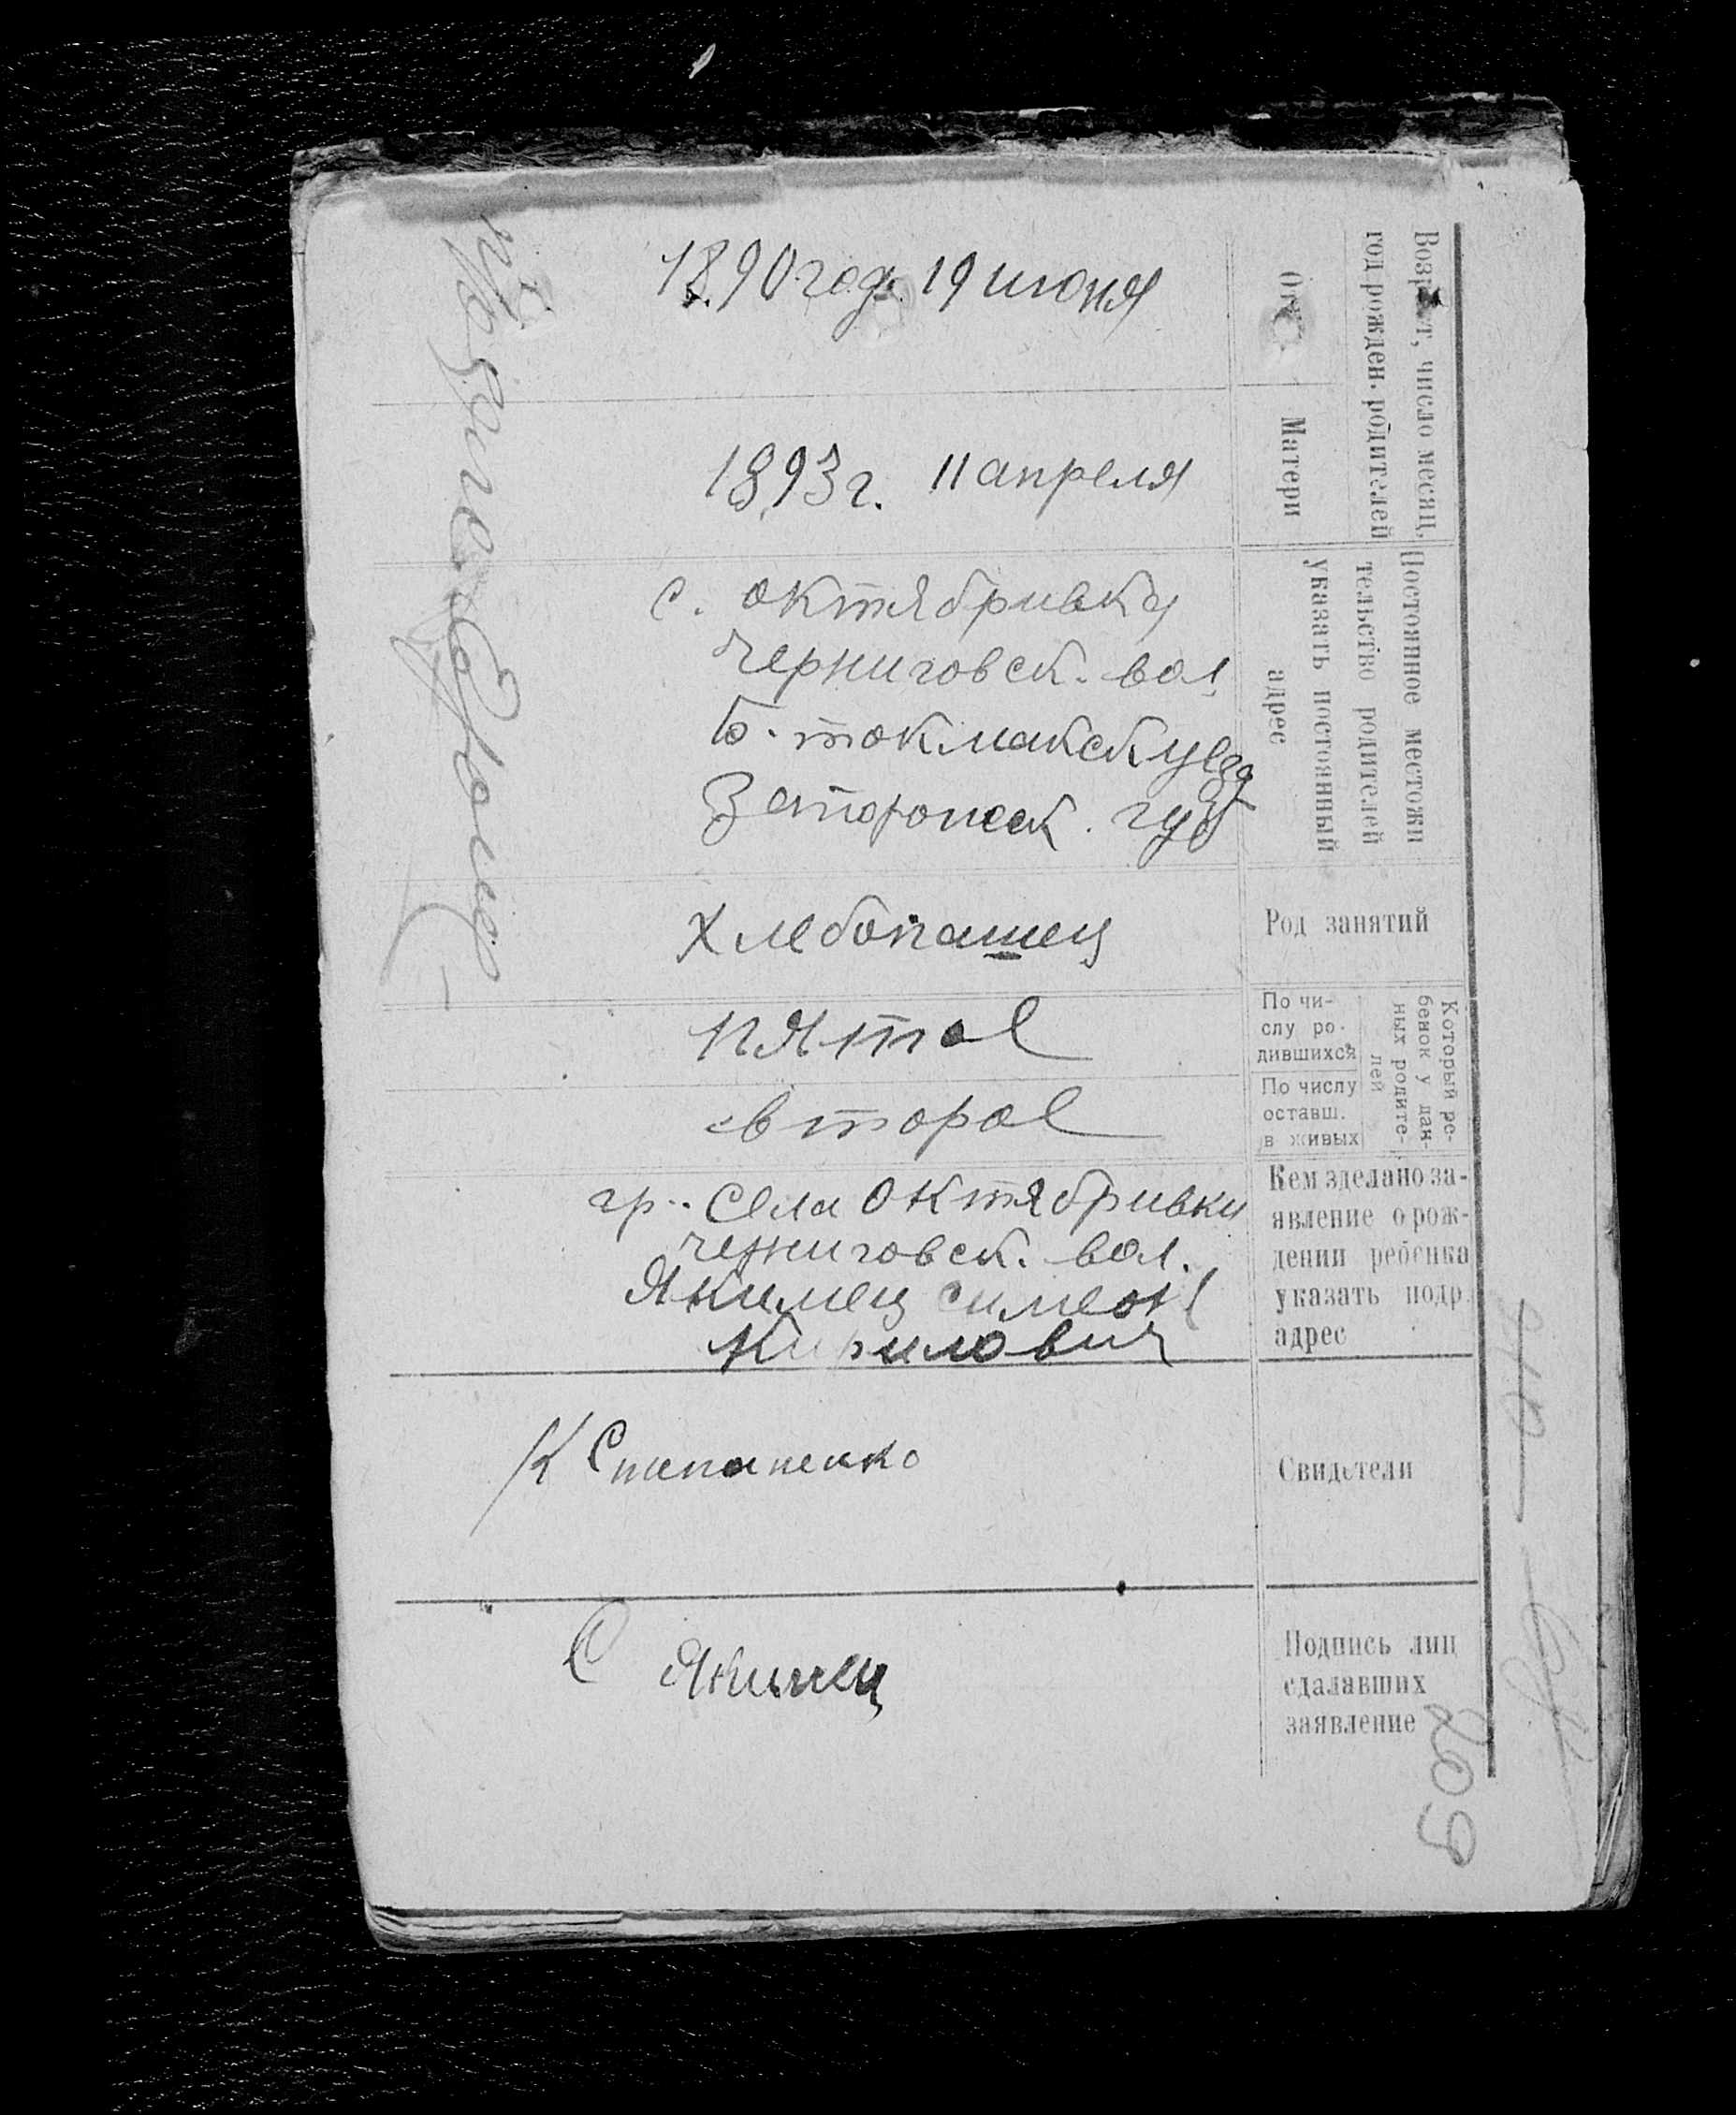 Возраст, число месяц,
год рожден. родителей
Отца
1890 год. 19 июня
Матери
1893 г. 11 апреля
Постоянное местожи
тельство родителей
указать постоянный
адрес
с. октябривку
Черниговск. вол
Б. токмакск уезд
Запорожск. губ
Род занятий
Хлебопашец
Который ре-
бенок у дан-
ных родите-
лей
По чи-
слу ро-
дившихся
пятое
По числу
оставш.
в живых
второе
Кем зделано за-
явление о рож-
дении ребенка
указать подр.
адрес
гр. села Октябривки
черниговск. вол.
Якимец симеон
Кирилович
Свидетели
К Степаненко
Подпись лиц
сдалавших
заявление
С Якимец
209